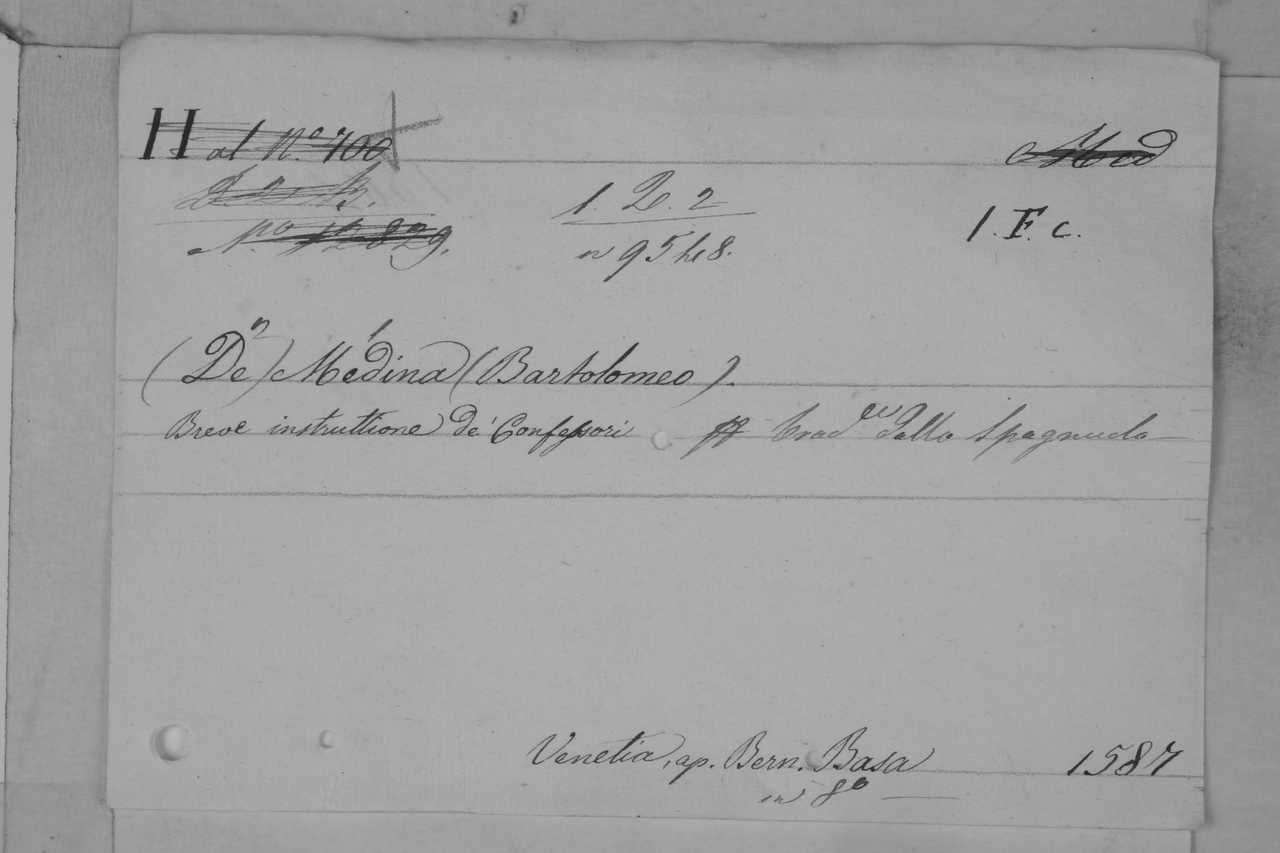 H al N.º 700
Med
N.º 12829.
1. Q. 2
n 9548.
1. F. c.
(De)² Medina¹ (Bartolomeo).
Breve instruttione de' Confessori trad.ᵉ dallo Spagnuolo
Venetia, ap. Bern. Basa 1587
in 8º